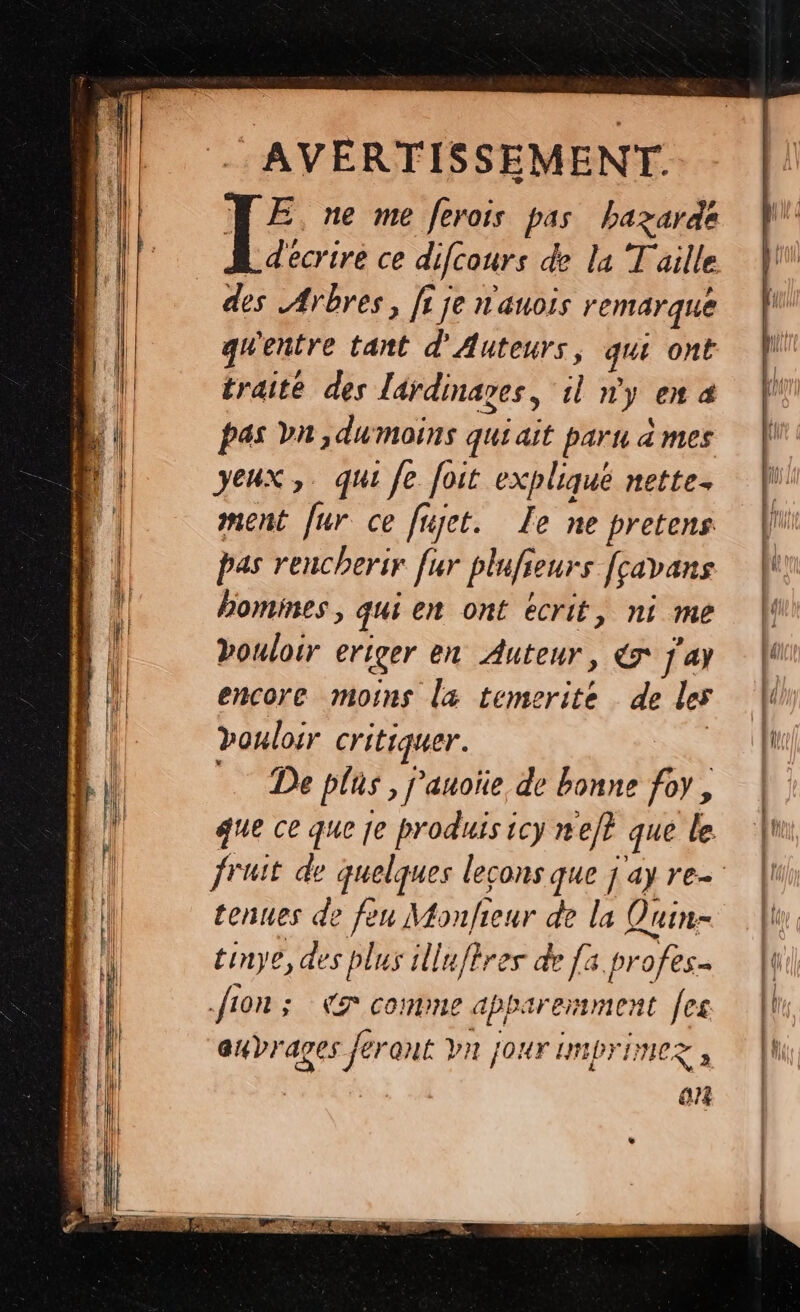 AVERTISSEMENT.
IE ne me ſerois pas hazardé
d'écrire ce diſcours de la Taille
des Arbres, ſi je n'auois remarqué
qu'entre tant d'Auteurs, qui ont
traité des Iardinages, il n'y en a
pas vn, du moins qui ait paru à mes
yeux, qui ſe ſoit expliqué nette-
ment ſur ce ſujet. Ie ne pretens
pas rencherir ſur pluſieurs ſçavans
hommes, qui en ont écrit, ni me
vouloir eriger en Auteur, & j'ay
encore moins la temerité de les
vouloir critiquer.
De plus, j'auoüe de bonne foy,
que ce que je produis icy n'eſt que le
fruit de quelques leçons que j'ay re-
tenues de feu Monſieur de la Quin-
tinye, des plus illuſtres de ſa profes-
ſion; & comme apparemment ſes
ouvrages ſeront vn jour imprimez,
on